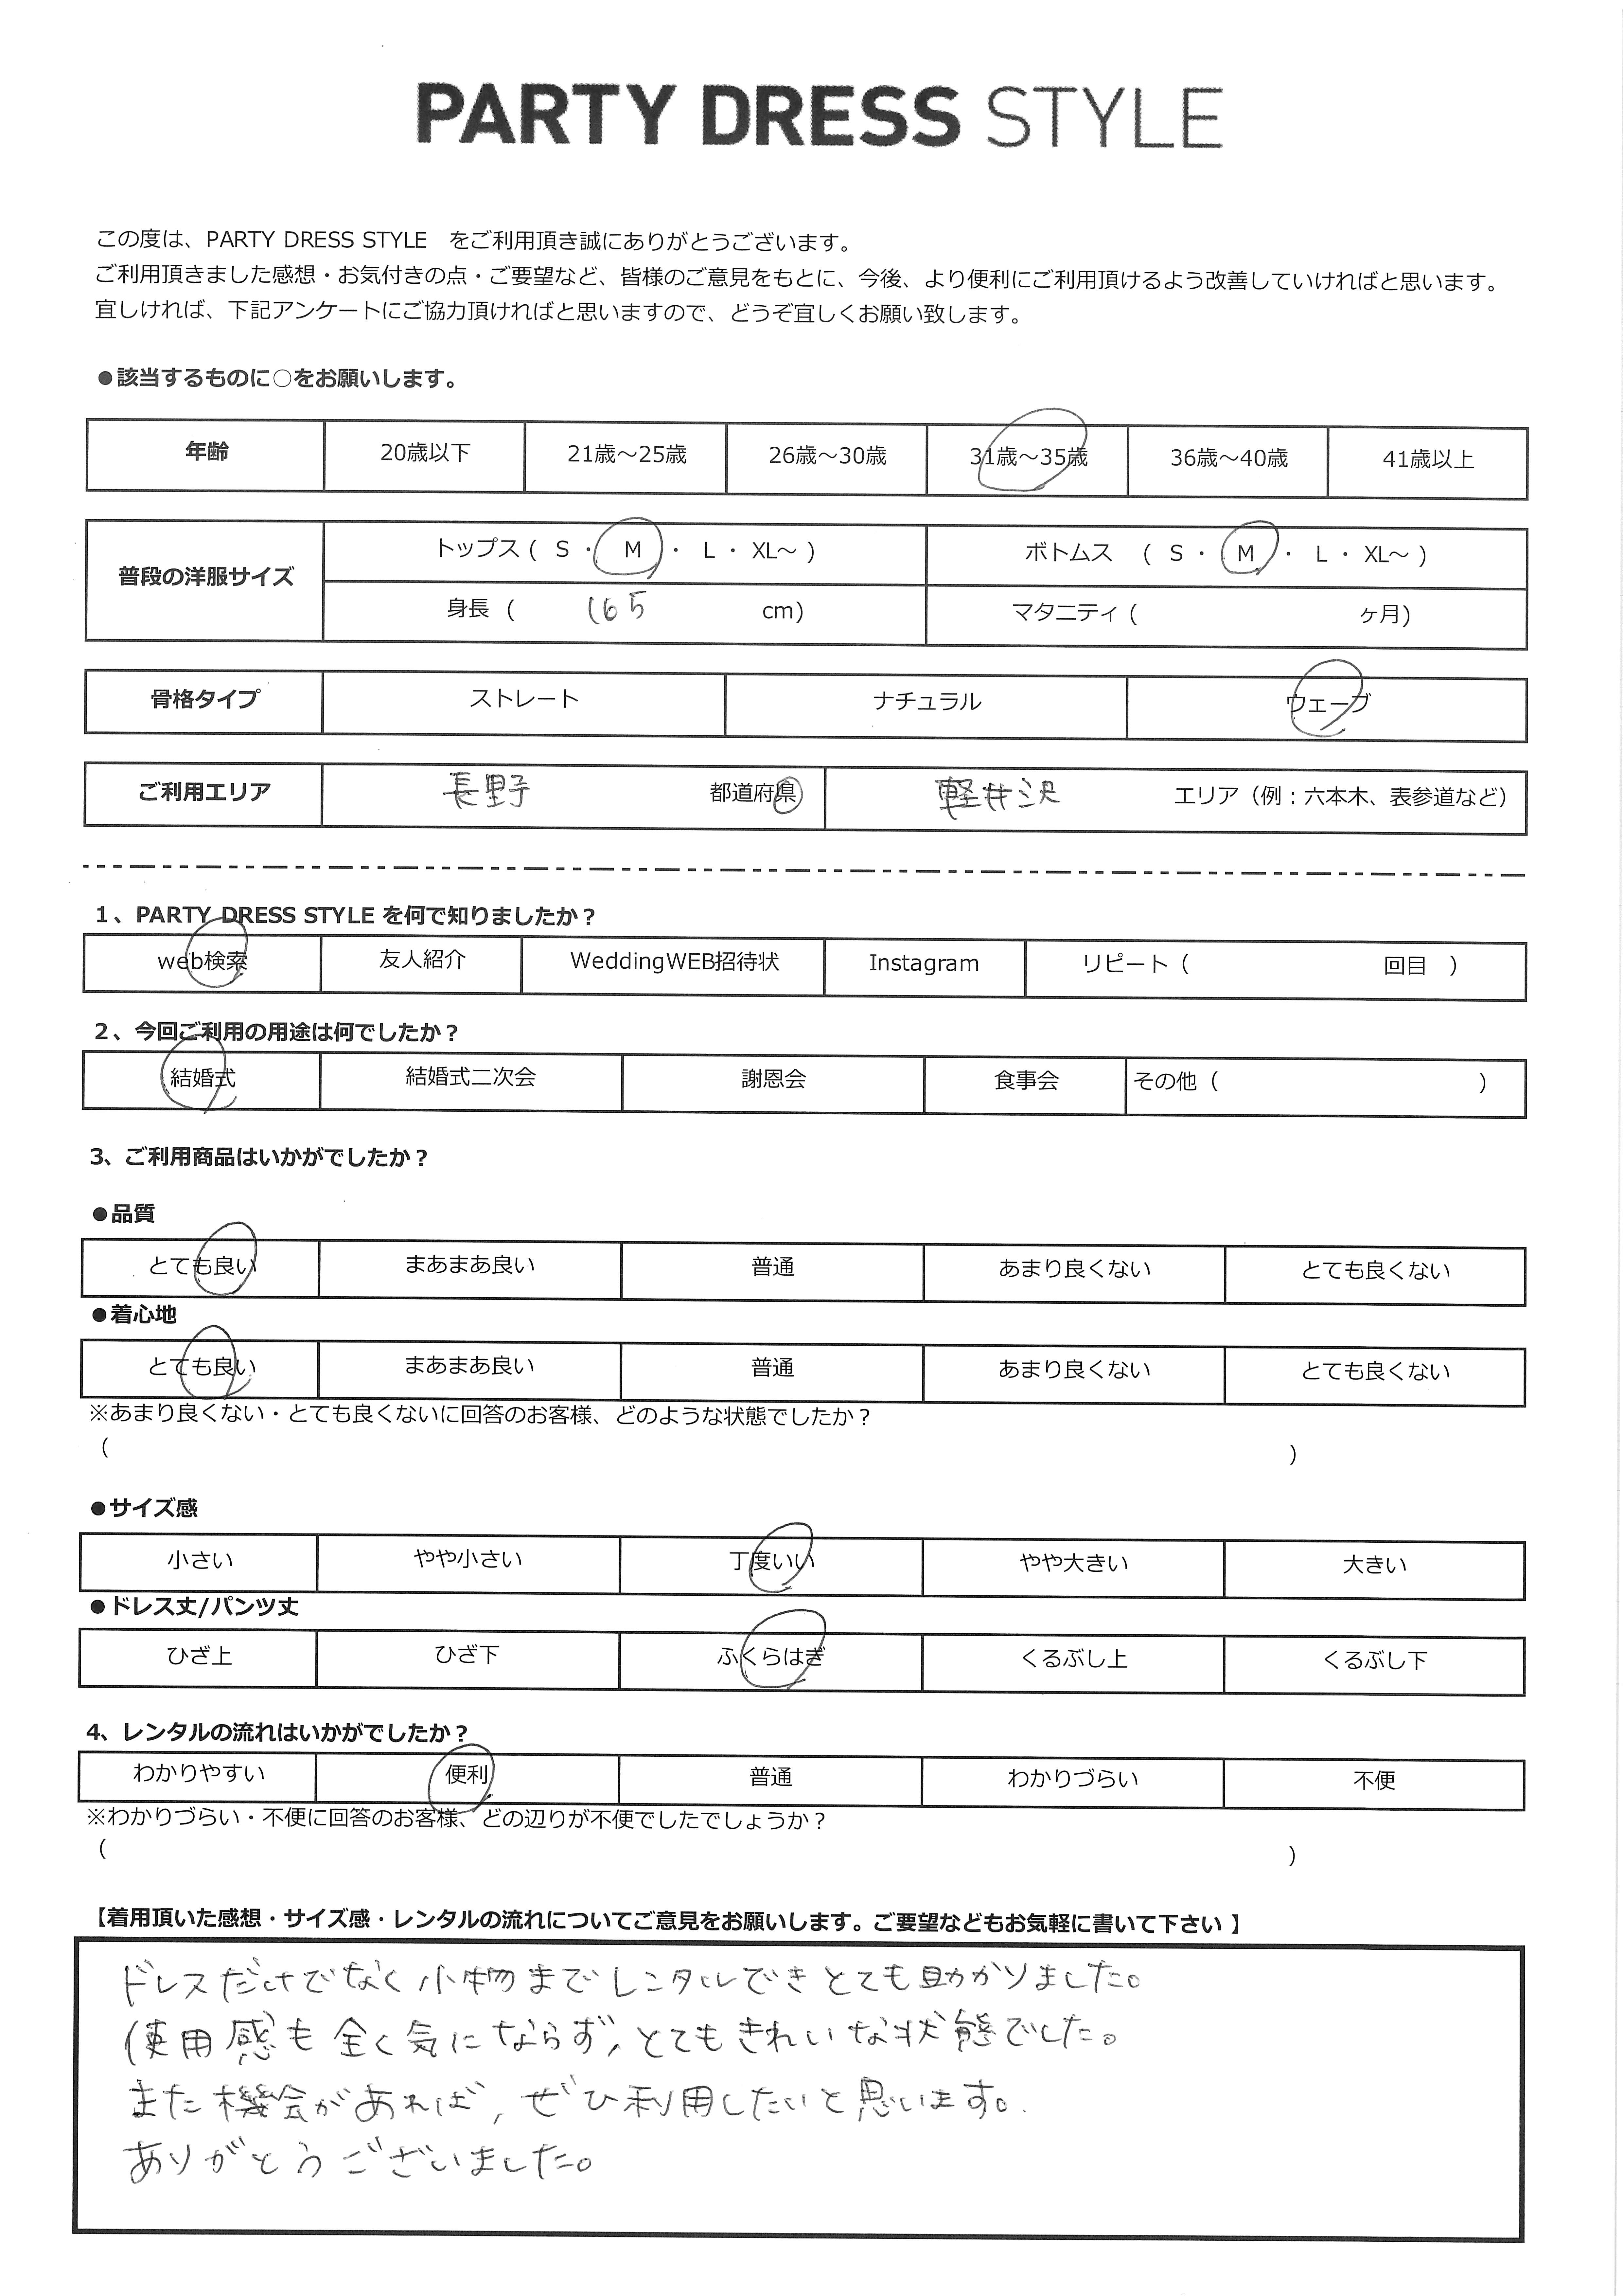 PARTY DRESS STYLE
この度は、PARTY DRESS STYLE をご利用頂き誠にありがとうございます。
ご利用頂きました感想・お気付きの点・ご要望など、皆様のご意見をもとに、今後、より便利にご利用頂けるよう改善していければと思います。
宜しければ、下記アンケートにご協力頂ければと思いますので、どうぞ宜しくお願い致します。
●該当するものに○をお願いします。
年齢 20歳以下 21歳～25歳 26歳～30歳 31歳～35歳 36歳～40歳 41歳以上
普段の洋服サイズ トップス ( S ・ M ・ L ・ XL～ ) ボトムス ( S ・ M ・ L ・ XL～ )
身長 ( 165 cm) マタニティ ( ヶ月)
骨格タイプ ストレート ナチュラル ウェーブ
ご利用エリア 長野 都道府県 軽井沢 エリア（例：六本木、表参道など）
1、PARTY DRESS STYLE を何で知りましたか？
web検索 友人紹介 WeddingWEB招待状 Instagram リピート（ 回目 ）
2、今回ご利用の用途は何でしたか？
結婚式 結婚式二次会 謝恩会 食事会 その他（ ）
3、ご利用商品はいかがでしたか？
●品質
とても良い まあまあ良い 普通 あまり良くない とても良くない
●着心地
とても良い まあまあ良い 普通 あまり良くない とても良くない
※あまり良くない・とても良くないに回答のお客様、どのような状態でしたか？
（ ）
●サイズ感
小さい やや小さい 丁度いい やや大きい 大きい
●ドレス丈/パンツ丈
ひざ上 ひざ下 ふくらはぎ くるぶし上 くるぶし下
4、レンタルの流れはいかがでしたか？
わかりやすい 便利 普通 わかりづらい 不便
※わかりづらい・不便に回答のお客様、どの辺りが不便でしたでしょうか？
（ ）
【着用頂いた感想・サイズ感・レンタルの流れについてご意見をお願いします。ご要望などもお気軽に書いて下さい 】
ドレスだけでなく小物までレンタルできとても助かりました。
使用感も全く気にならず、とてもきれいな状態でした。
また機会があれば、ぜひ利用したいと思います。
ありがとうございました。